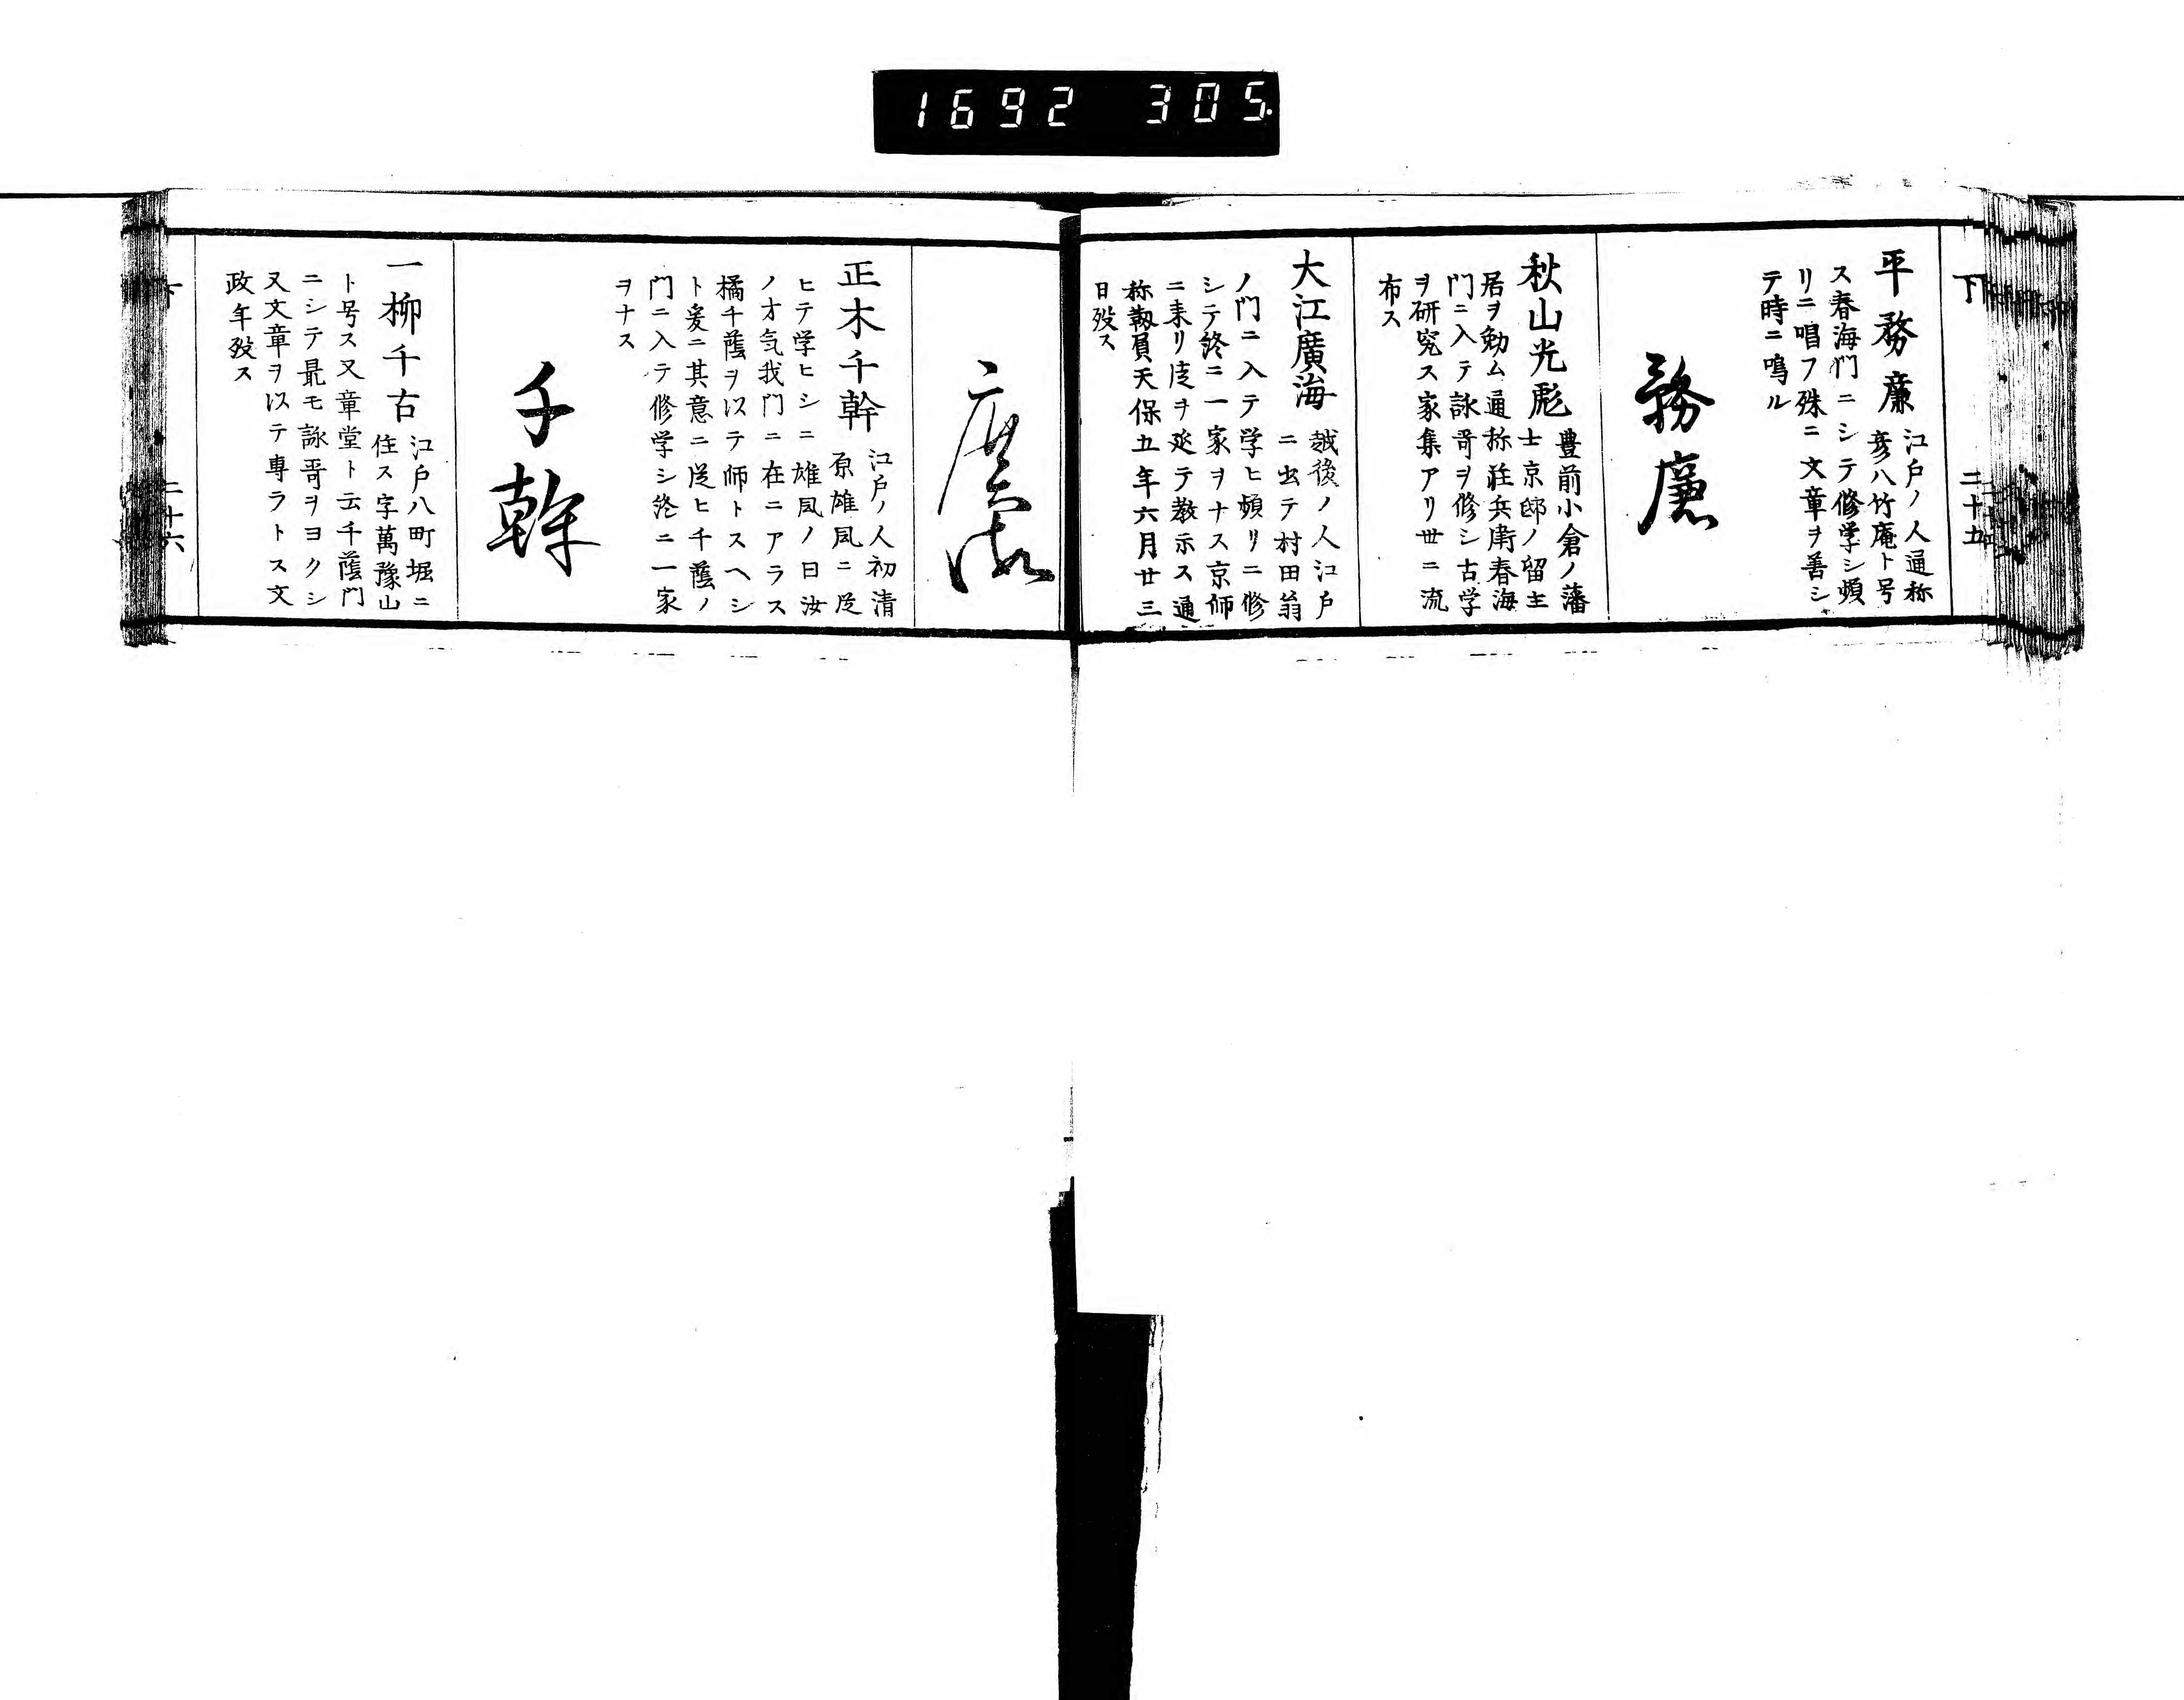 1692 305.
下 二十五
平務廉 江戸ノ人通称
彦八竹庵ト号
ス春海門ニシテ修学シ頻
リニ唱フ殊ニ文章ヲ善シ
テ時ニ鳴ル
務廉
秋山光彪 豊前小倉ノ藩
士京邸ノ留主
居ヲ勤ム通称荘兵衛春海
門ニ入テ詠哥ヲ修シ古学
ヲ研究ス家集アリ世ニ流
布ス
大江廣海 越後ノ人江戸
ニ出テ村田翁
ノ門ニ入テ学ヒ頻リニ修
シテ終ニ一家ヲナス京師
ニ来リ徒ヲ延テ教示ス通
称靱負天保五年六月廿三
日歿ス
廣海
正木千幹 江戸ノ人初清
原雄風ニ従
ヒテ学ヒシニ雄風ノ曰汝
ノ才気我門ニ在ニアラス
橘千蔭ヲ以テ師トスヘシ
ト爰ニ其意ニ従ヒ千蔭ノ
門ニ入テ修学シ終ニ一家
ヲナス
千幹
一柳千古 江戸八町堀ニ
住ス字萬豫山
ト号ス又章堂ト云千蔭門
ニシテ最モ詠哥ヲヨクシ
又文章ヲ以テ専ラトス文
政年歿ス
下 二十六